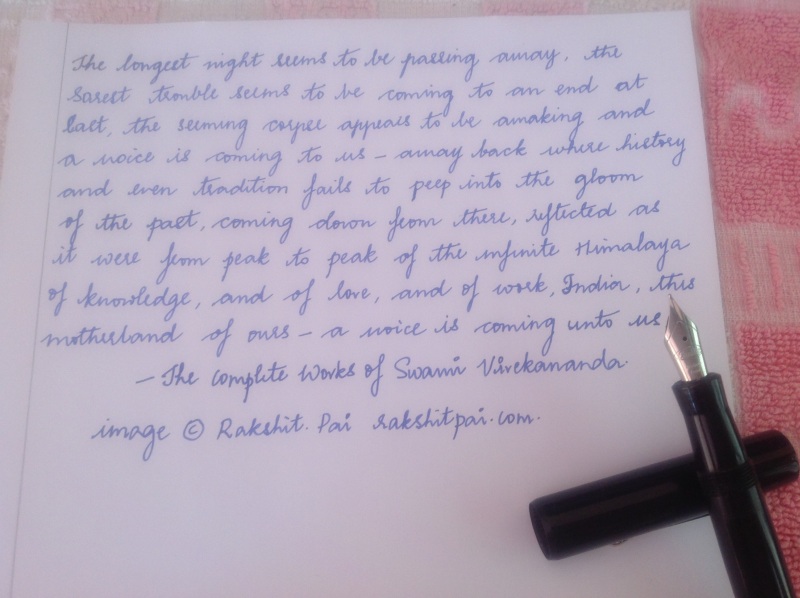 The longest night seems to be passing away, the
sorest trouble seems to be coming to an end at
last, the seeming corpse appears to be awaking and
a voice is coming to us – away back where history
and even tradition fails to peep into the gloom
of the past, coming down from there, reflected as
it were from peak to peak of the infinite Himalaya
of knowledge, and of love, and of work, India, this
motherland of ours – a voice is coming unto us
– The Complete Works of Swami Vivekananda.
image © Rakshit. Pai rakshitpai.com.